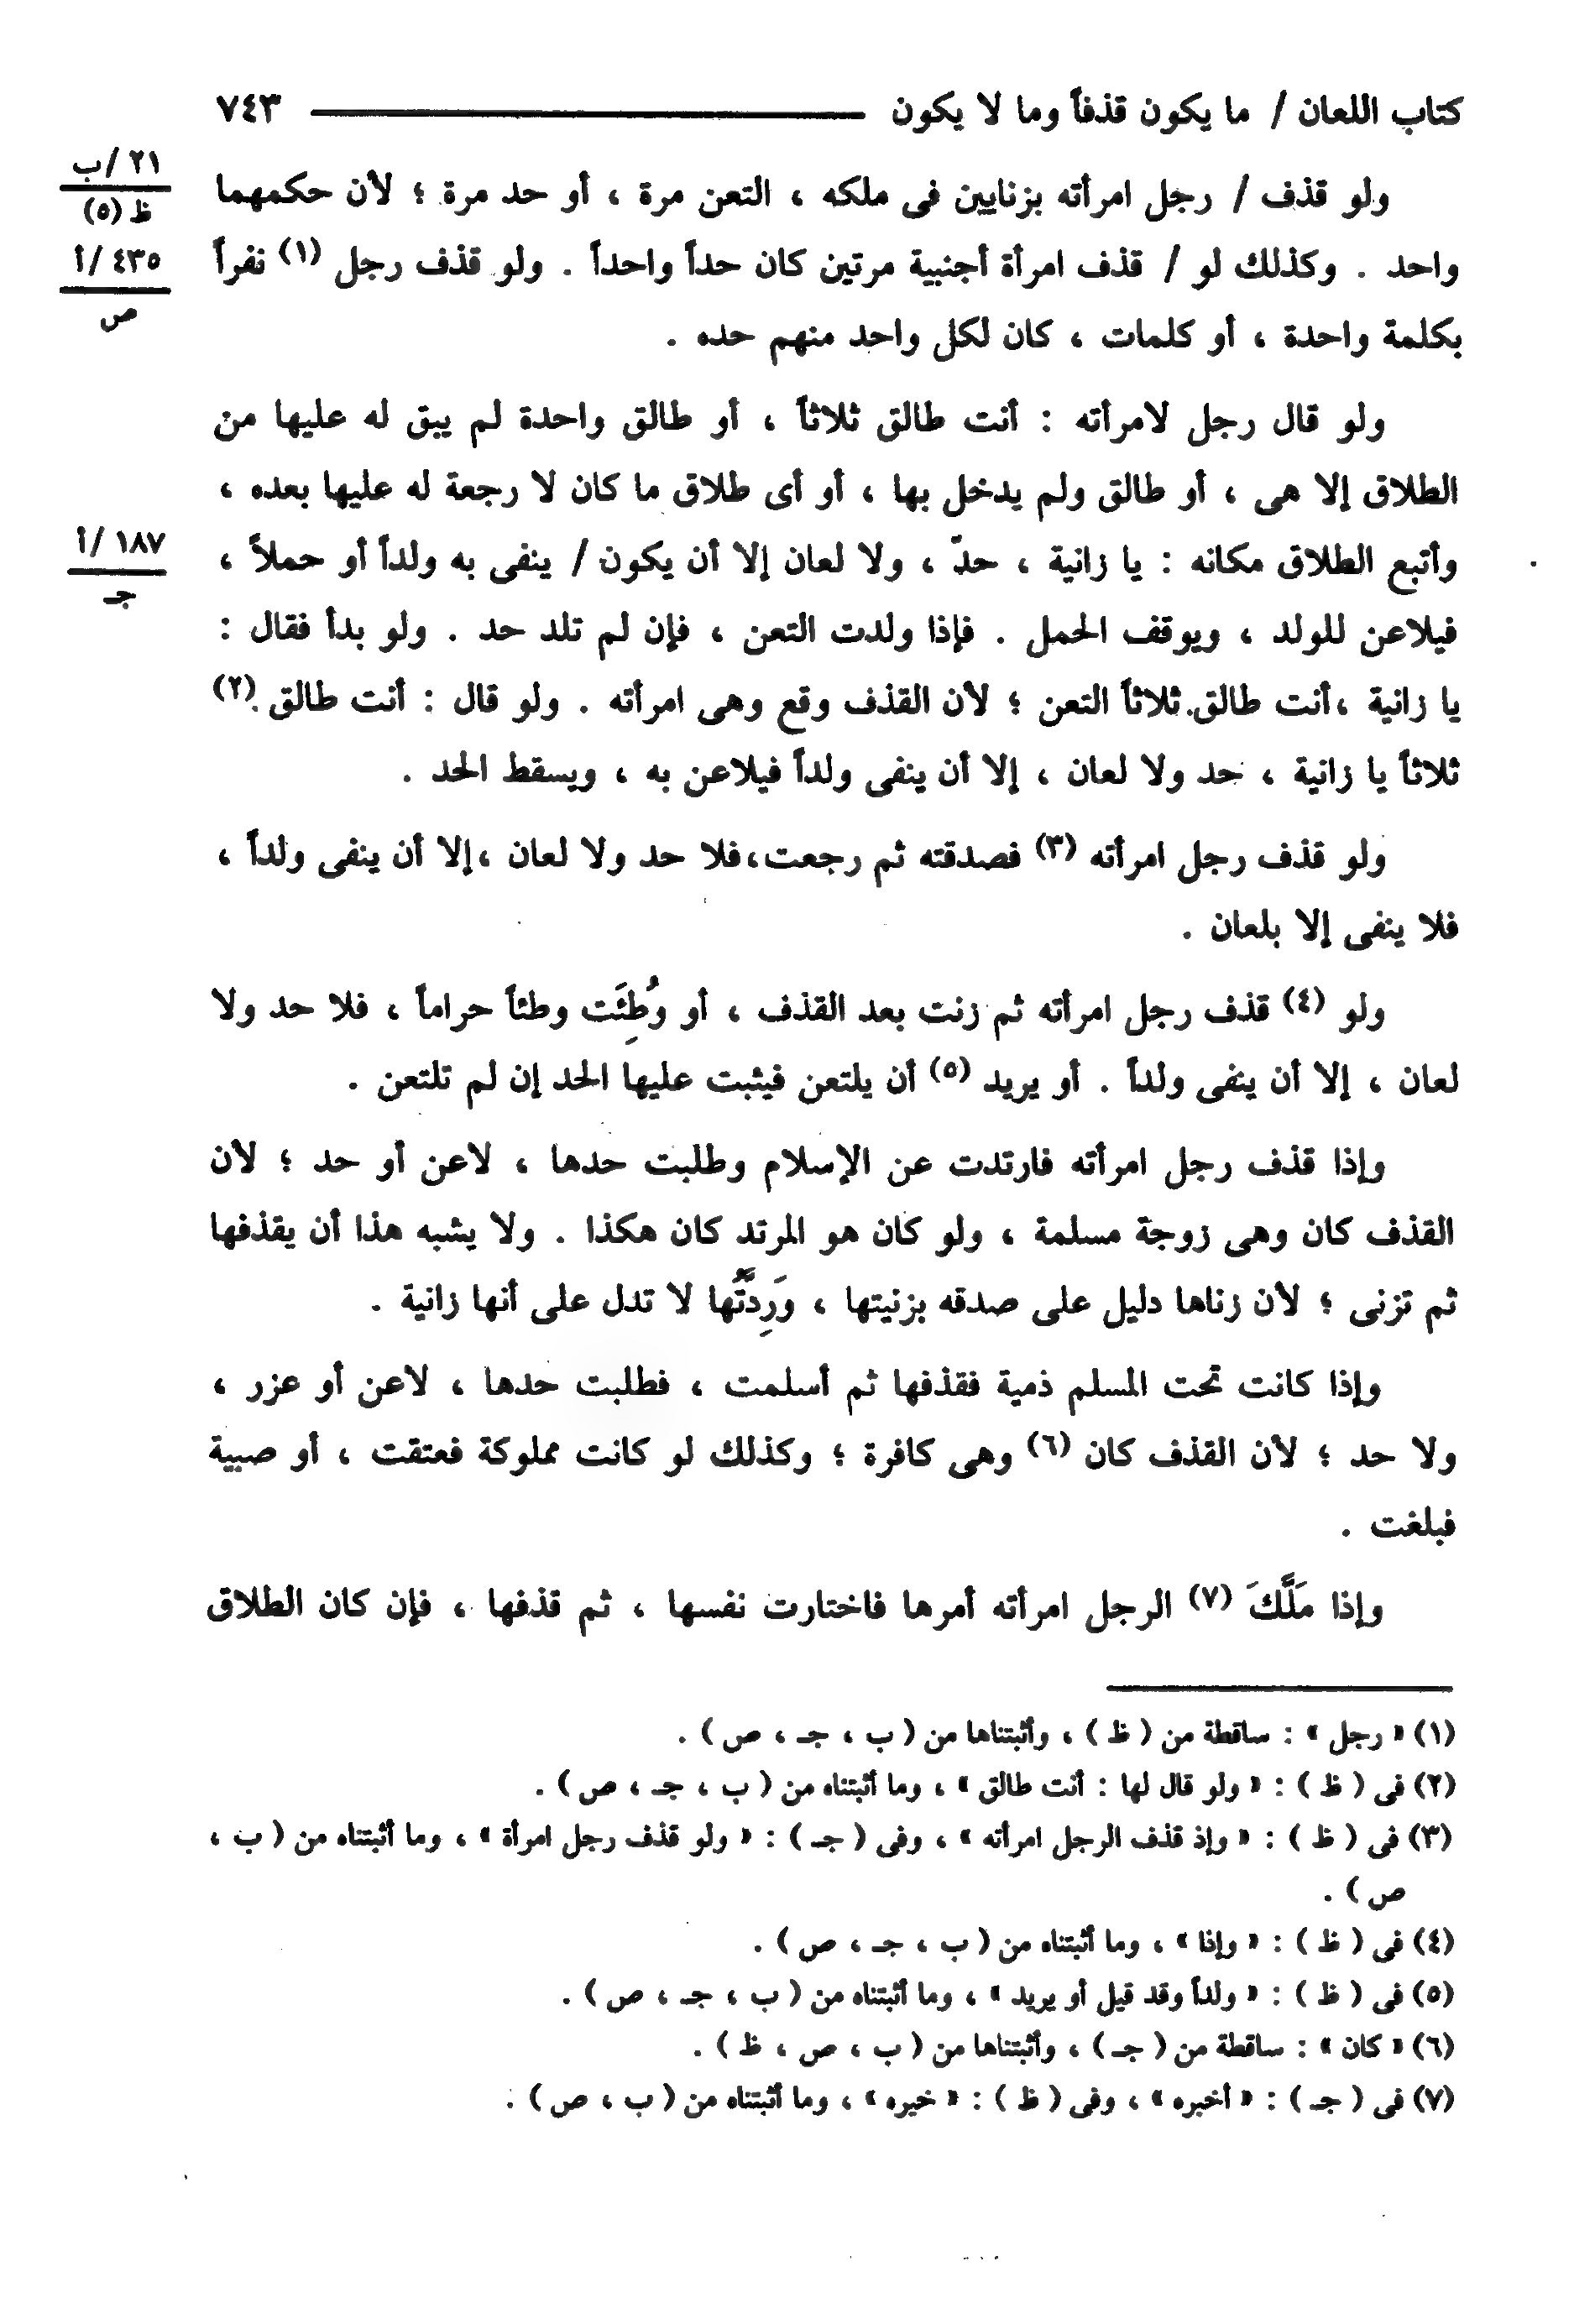 كتاب اللعان / ما يكون قذفاً وما لا يكون ٧٤٣
٢١ /ب
ظ (٥)
٤٣٥ /أ
ص
ولو قذف / رجل امرأته بزنايين فى ملكه ، التعن مرة ، أو حد مرة ؛ لأن حكمهما
واحد . وكذلك لو / قذف امرأة أجنبية مرتين كان حداً واحداً . ولو قذف رجل (١) نفراً
بكلمة واحدة ، أو كلمات ، كان لكل واحد منهم حده .
ولو قال رجل لامرأته : أنت طالق ثلاثاً ، أو طالق واحدة لم يبق له عليها من
الطلاق إلا هى ، أو طالق ولم يدخل بها ، أو أى طلاق ما كان لا رجعة له عليها بعده ،
١٨٧ /أ
جـ
وأتبع الطلاق مكانه : يا زانية ، حدّ ، ولا لعان إلا أن يكون / ينفى به ولداً أو حملاً ،
فيلاعن للولد ، ويوقف الحمل . فإذا ولدت التعن ، فإن لم تلد حد . ولو بدأ فقال :
يا زانية ،أنت طالق ثلاثاً التعن ؛ لأن القذف وقع وهى امرأته . ولو قال : أنت طالق (٢)
ثلاثاً يا زانية ، حد ولا لعان ، إلا أن ينفى ولداً فيلاعن به ، ويسقط الحد .
ولو قذف رجل امرأته (٣) فصدقته ثم رجعت،فلا حد ولا لعان ،إلا أن ينفى ولداً ،
فلا ينفى إلا بلعان .
ولو (٤) قذف رجل امرأته ثم زنت بعد القذف ، أو وُطِئَت وطئاً حراماً ، فلا حد ولا
لعان ، إلا أن ينفى ولداً . أو يريد (٥) أن يلتعن فيثبت عليها الحد إن لم تلتعن .
وإذا قذف رجل امرأته فارتدت عن الإسلام وطلبت حدها ، لاعن أو حد ؛ لأن
القذف كان وهى زوجة مسلمة ، ولو كان هو المرتد كان هكذا . ولا يشبه هذا أن يقذفها
ثم تزنى ؛ لأن زناها دليل على صدقه بزنيتها ، وَرِدَّتُها لا تدل على أنها زانية .
وإذا كانت تحت المسلم ذمية فقذفها ثم أسلمت ، فطلبت حدها ، لاعن أو عزر ،
ولا حد ؛ لأن القذف كان (٦) وهى كافرة ؛ وكذلك لو كانت مملوكة فعتقت ، أو صبية
فبلغت .
وإذا مَلَّكَ (٧) الرجل امرأته أمرها فاختارت نفسها ، ثم قذفها ، فإن كان الطلاق
(١) « رجل » : ساقطة من ( ظ ) ، وأثبتناها من ( ب ، جـ ، ص ) .
(٢) فى ( ظ ) : « ولو قال لها : أنت طالق » ، وما أثبتناه من ( ب ، جـ ، ص ) .
(٣) فى ( ظ ) : « وإذ قذف الرجل امرأته » ، وفى ( جـ ) : « ولو قذف رجل امرأة » ، وما أثبتناه من ( ب ،
ص ) .
(٤) فى ( ظ ) : « وإذا » ، وما أثبتناه من ( ب ، جـ ، ص ) .
(٥) فى ( ظ ) : « ولداً وقد قيل أو يريد » ، وما أثبتناه من ( ب ، جـ ، ص ) .
(٦) « كان » : ساقطة من ( جـ ) ، وأثبتناها من ( ب ، ص ، ظ ) .
(٧) فى ( جـ ) : « أخبره » ، وفى ( ظ ) : « خيره » ، وما أثبتناه من ( ب ، ص ) .